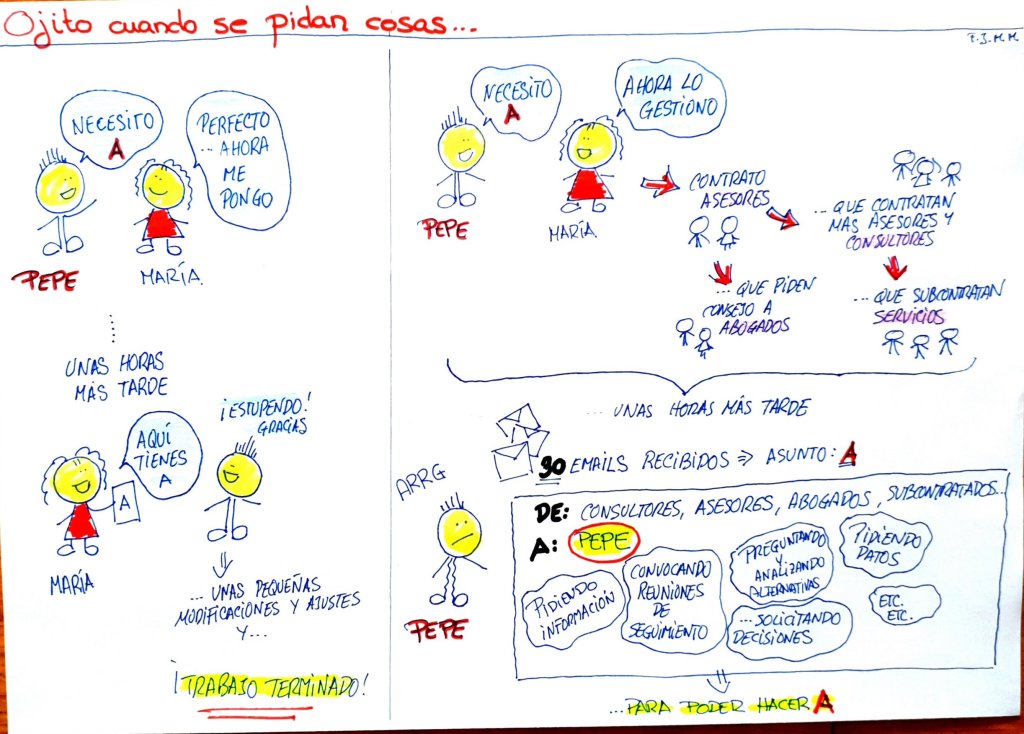 Ojito cuando se pidan cosas...
NECESITO
A
PERFECTO
... AHORA
ME
PONGO
PEPE
MARÍA.
UNAS HORAS
MÁS TARDE
AQUÍ
TIENES
A
¡ESTUPENDO!
GRACIAS
A
MARÍA
... UNAS PEQUEÑAS
MODIFICACIONES Y AJUSTES
Y...
¡TRABAJO TERMINADO!
NECESITO
A
AHORA LO
GESTIONO
PEPE
MARÍA.
CONTRATO
ASESORES
... QUE CONTRATAN
MAS ASESORES Y
CONSULTORES
... QUE PIDEN
CONSEJO A
ABOGADOS
... QUE SUBCONTRATAN
SERVICIOS
... UNAS HORAS MÁS TARDE
30 EMAILS RECIBIDOS ⇒ ASUNTO: A
ARRG
PEPE
DE: CONSULTORES, ASESORES, ABOGADOS, SUBCONTRATADOS...
A: PEPE
PIDIENDO
INFORMACIÓN
CONVOCANDO
REUNIONES
DE
SEGUIMIENTO
PREGUNTANDO
Y
ANALIZANDO
ALTERNATIVAS
PIDIENDO
DATOS
... SOLICITANDO
DECISIONES
ETC.
ETC.
...PARA PODER HACER A